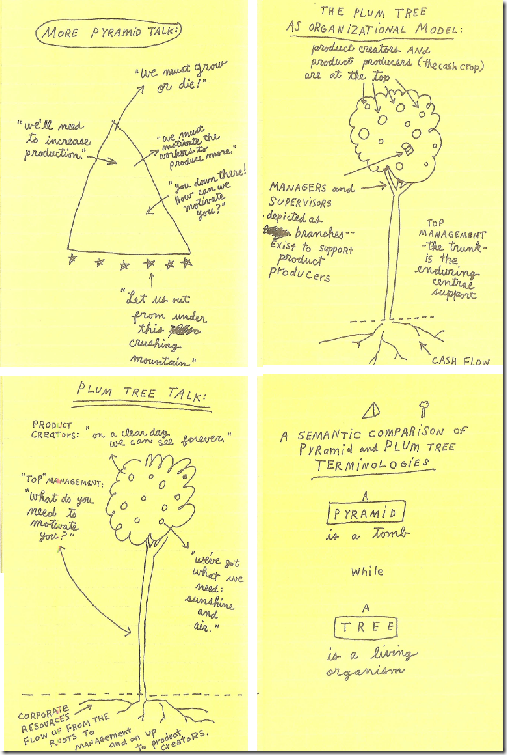 MORE PYRAMID TALK:
"We must grow
or die!"
"we'll need
to increase
production."
"we must
motivate the
workers to
produce more."
"you down there!
How can we
motivate
you?"
"Let us out
from under
this
crushing
mountain."
THE PLUM TREE
AS ORGANIZATIONAL MODEL:
product creators AND
product producers (the cash crop)
are at the top
MANAGERS and
SUPERVISORS
depicted as
branches--
EXIST TO SUPPORT
PRODUCT
PRODUCERS
TOP
MANAGEMENT
-the trunk-
is the
enduring
central
support
CASH FLOW
PLUM TREE TALK:
PRODUCT
CREATORS: "on a clear day
we can see forever"
"TOP" MANAGEMENT:
"What do you
need to
motivate
you?"
"we've got
what we
need:
sunshine
and
air."
CORPORATE
RESOURCES
FLOW UP FROM THE
ROOTS TO
MANAGEMENT and on up
to product
CREATORS.
A SEMANTIC COMPARISON OF
PYRAMID and PLUM TREE
TERMINOLOGIES
A
PYRAMID
is a tomb
while
A
TREE
is a living
organism